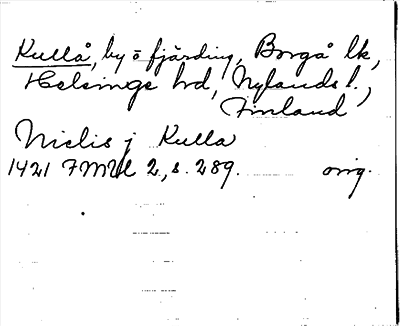 Kullå, by o fjärding, Borgå lk,
Helsinge hd, Nylands l.,
Finland
Niclis j Kulla
1421 FMU 2, s. 289. orig.